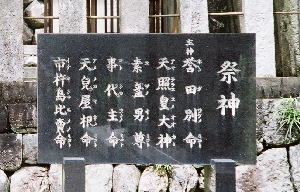 祭神
主神 誉田別命
天照皇大神
素盞男尊
事代主命
天児屋根命
市杵島比賣命